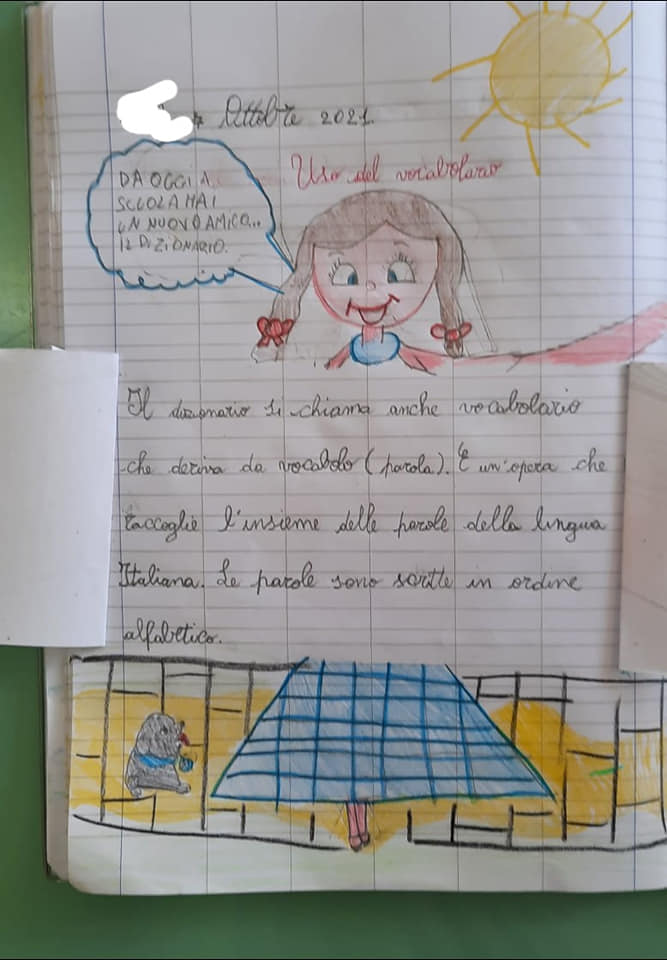 Ottobre 2021.
Uso del vocabolario
DA OGGI A
SCUOLA HAI
UN NUOVO AMICO...
IL DIZIONARIO.
Il dizionario si chiama anche vocabolario
che deriva da vocabolo (parola). È un'opera che
raccoglie l'insieme delle parole della lingua
Italiana. Le parole sono scritte in ordine
alfabetico.